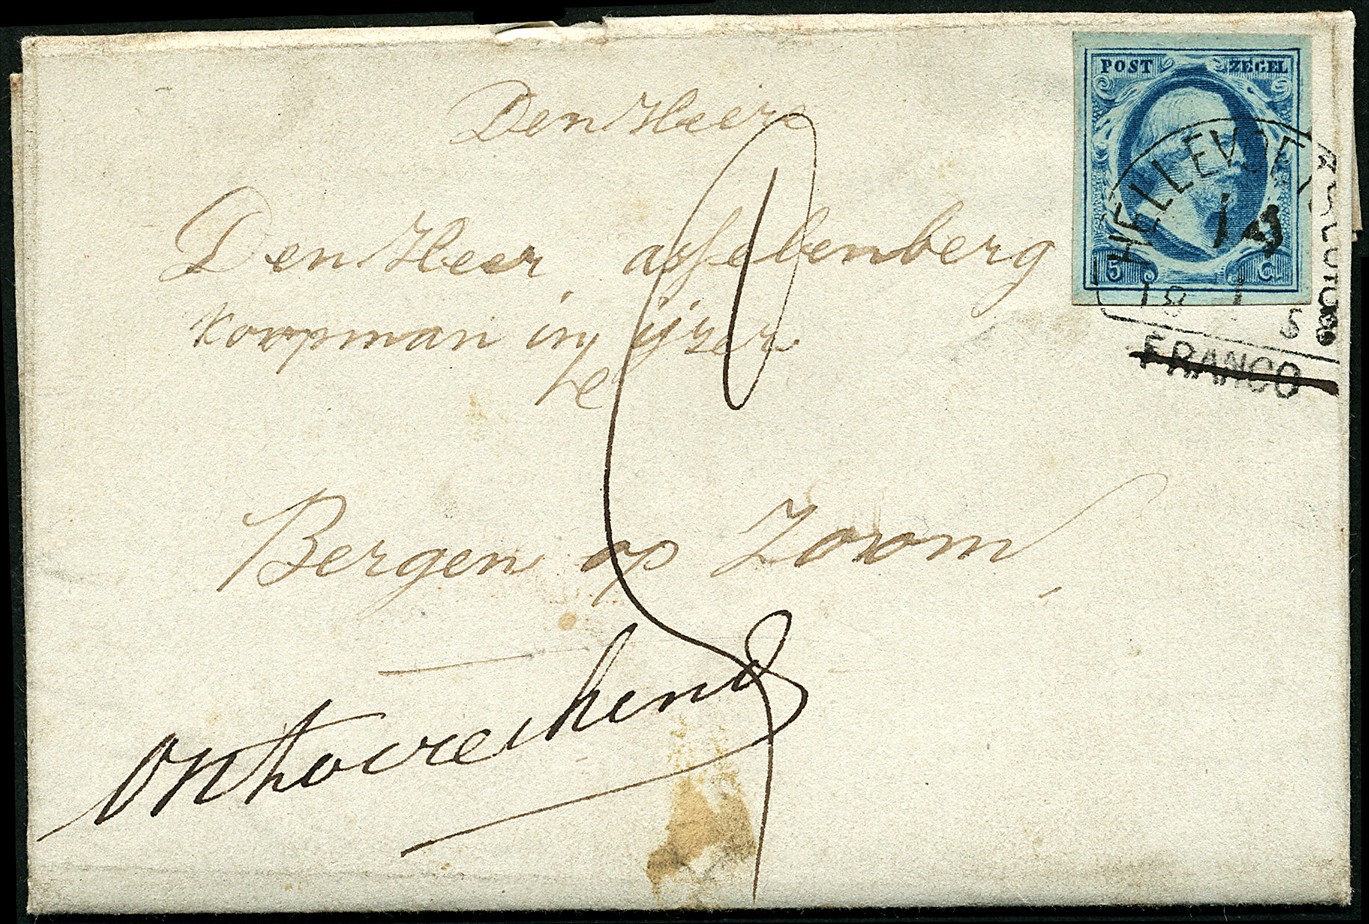 POST ZEGEL
5 Ct.
HELLEVOET
19
18 1 5
FRANCO
Den Heere
Den Heer asselenberg
koopman in ijzer
te
Bergen op Zoom
ontoereikend